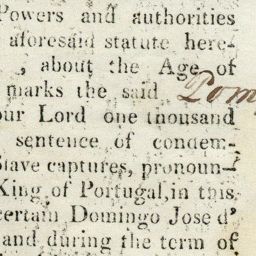 Powers and authorities
aforesaid statute here-
, about the Age of
marks the said Pom
our Lord one thousand
sentence of condem-
Slave captures, pronoun-
King of Portugal, in this
certain Domingo Jose d'
and during the term of